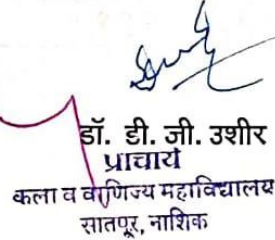 डॉ. डी. जी. उशीर
प्राचार्य
कला व वाणिज्य महाविद्यालय
सातपूर, नाशिक